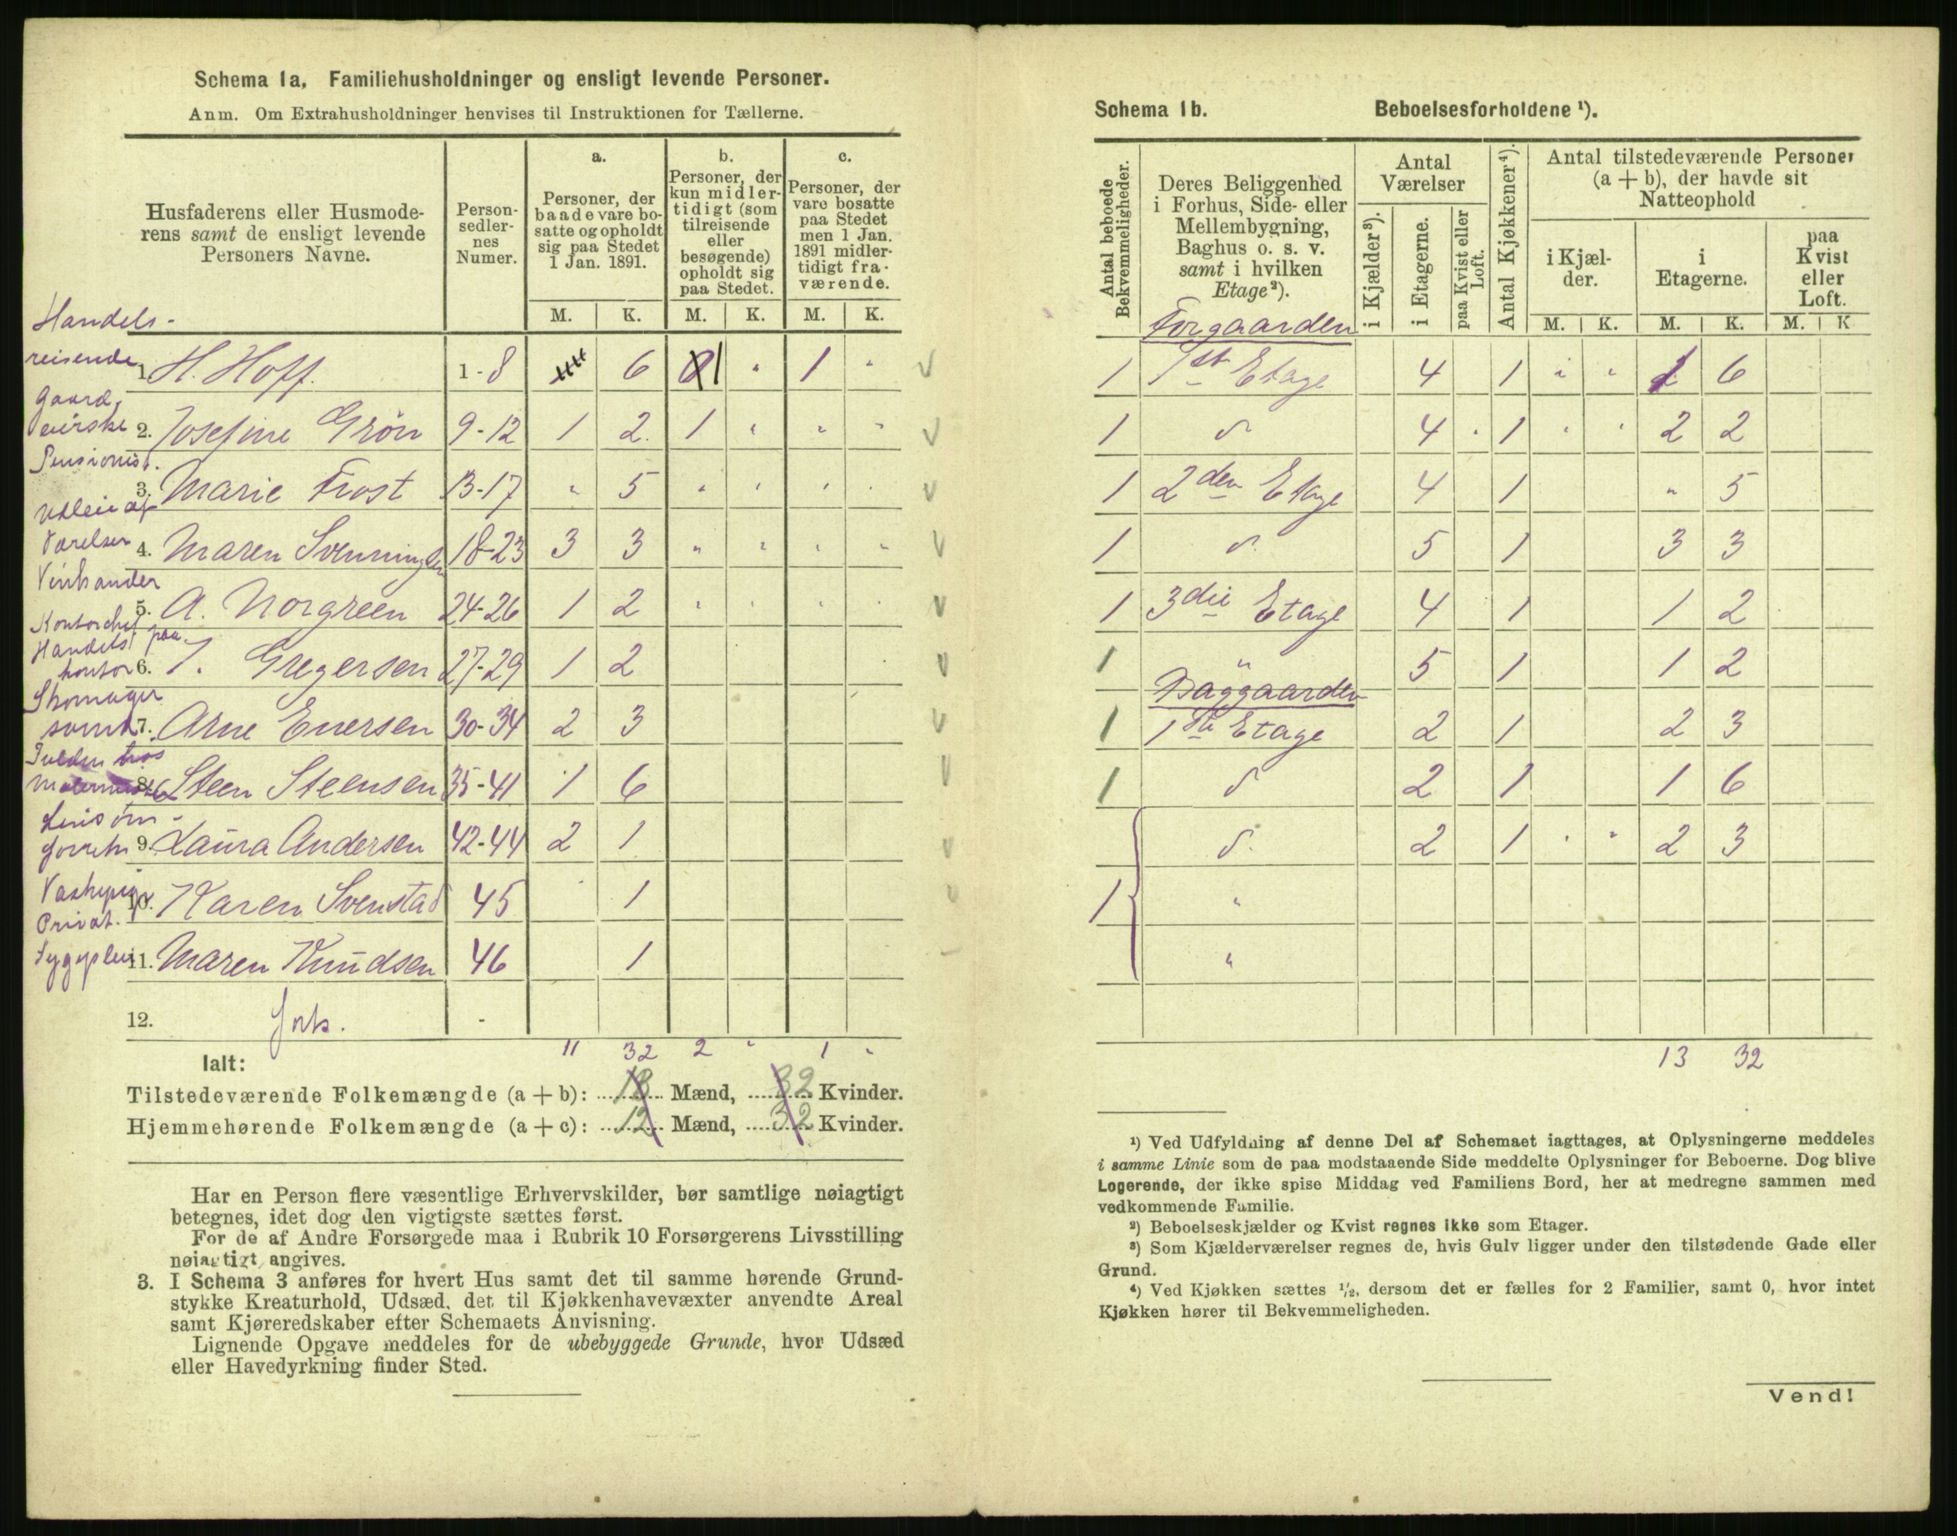 Schema 1a. Familiehusholdninger og ensligt levende Personer.
Anm. Om Extrahusholdninger henvises til Instruktionen for Tællerne.
Husfaderens eller Husmode-
rens samt de ensligt levende
Personers Navne.
Person-
sedler-
nes
Numer.
a.
Personer, der
baade vare bo-
satte og opholdt
sig paa Stedet
1 Jan. 1891.
b.
Personer, der
kun midler-
tidigt (som
tilreisende
eller
besøgende)
opholdt sig
paa Stedet.
c.
Personer, der
vare bosatte
paa Stedet
men 1 Jan.
1891 midler-
tidigt fra-
værende.
M. K. M. K. M. K.
Handels-
reisende
1. H. Hoff. 1-8 6 1 " 1 "
Gaard
eierske
2. Josefine Grøn 9-12 1 2. 1 " " "
Pensionist.
3. Marie Frost 13-17 " 5 " " " "
Udleie af
Værelser
4. Maren Svenningsen 18-23 3 3 " " " "
Vinhandler
5. A. Norgreen 24-26 1 2 " " " "
Kontorchef paa
Handels
kontor
6. J. Gregersen 27-29 1 2
Skomager
svend
7. Arne Evensen 30-34 2 3
8. Steen Steensen 35-41 1 6
9. Laura Andersen 42-44 2 1
Vaskepige
10. Karen Svenstad 45 1
Privat.
Sygeplei
11. Maren Knudsen 46 1
12. Forts. -
Ialt: 11 32 2 " 1 "
Tilstedeværende Folkemængde (a + b): 13 Mænd, 32 Kvinder.
Hjemmehørende Folkemængde (a + c): 12 Mænd, 32 Kvinder.
Har en Person flere væsentlige Erhvervskilder, bør samtlige nøiagtigt
betegnes, idet dog den vigtigste sættes først.
For de af Andre Forsørgede maa i Rubrik 10 Forsørgerens Livsstilling
nøiagtigt angives.
3. I Schema 3 anføres for hvert Hus samt det til samme hørende Grund-
stykke Kreaturhold, Udsæd, det til Kjøkkenhavevæxter anvendte Areal
samt Kjøreredskaber efter Schemaets Anvisning.
Lignende Opgave meddeles for de ubebyggede Grunde, hvor Udsæd
eller Havedyrkning finder Sted.
Schema 1b. Beboelsesforholdene ¹).
Antal beboede
Bekvemmeligheder.
Deres Beliggenhed
i Forhus, Side- eller
Mellembygning,
Baghus o. s. v.
samt i hvilken
Etage²).
Antal
Værelser
i Kjælder³).
i Etagerne.
paa Kvist eller
Loft.
Antal Kjøkkener⁴).
Antal tilstedeværende Personer
(a + b), der havde sit
Natteophold
i Kjæl-
der.
i
Etagerne.
paa
Kvist
eller
Loft.
M. K. M. K. M. K
Forgaarden
1 1ste Etage 4 1 " " 6
1 do 4 " 1 " " 2 2
1 2den Etage 4 1 " 5
1 do. 5 1 3 3
1 3die Etage 4 1 1 2
1 " 5 1 1 2
Baggaarden
1 1ste Etage 2 1 2 3
1 do 2 1 1 6
1 do. 2 1 " " 2 3
"
"
13 32
¹) Ved Udfyldning af denne Del af Schemaet iagttages, at Oplysningerne meddeles
i samme Linie som de paa modstaaende Side meddelte Oplysninger for Beboerne. Dog blive
Logerende, der ikke spise Middag ved Familiens Bord, her at medregne sammen med
vedkommende Familie.
²) Beboelseskjælder og Kvist regnes ikke som Etager.
³) Som Kjælderværelser regnes de, hvis Gulv ligger under den tilstødende Gade eller
Grund.
⁴) Ved Kjøkken sættes ¹/₂, dersom det er fælles for 2 Familier, samt 0, hvor intet
Kjøkken hører til Bekvemmeligheden.
Vend!